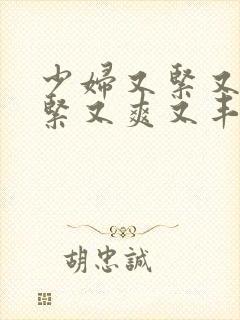 少婦又緊又
緊又爽又丰
胡忠誠